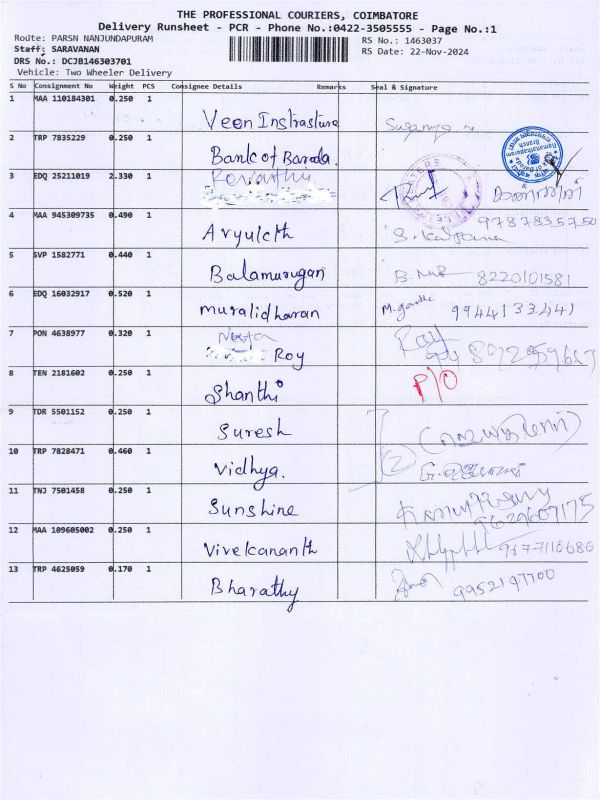 THE PROFESSIONAL COURIERS, COIMBATORE
Delivery Runsheet - PCR - Phone No.:0422-3505555 - Page No.:1
Route: PARSN NANJUNDAPURAM RS No.: 1463037
Staff: SARAVANAN RS Date: 22-Nov-2024
DRS No.: DCJB146303701
Vehicle: Two Wheeler Delivery
S No Consignment No Weight PCS Consignee Details Remarks Seal & Signature
1 MAA 110184301 0.250 1 Veon Instrasture
2 TRP 7835229 0.250 1 Bank of Baroda.
3 EDQ 25211019 2.330 1
4 MAA 945309735 0.490 1 9787835750
5 SVP 1582771 0.440 1 Balamurugan 8220101581
6 EDQ 16032917 0.520 1 muralidharan 9944133441
7 PON 4638977 0.320 1 Roy Roy
8 TEN 2181602 0.250 1 Shanthi P/O
9 TDR 5501152 0.250 1 Suresh
10 TRP 7828471 0.460 1 Vidhya. 2
11 TNJ 7501458 0.250 1 Sunshine
12 MAA 109605002 0.250 1 Vivekananth 9677110680
13 TRP 4625059 0.170 1 Bharathy